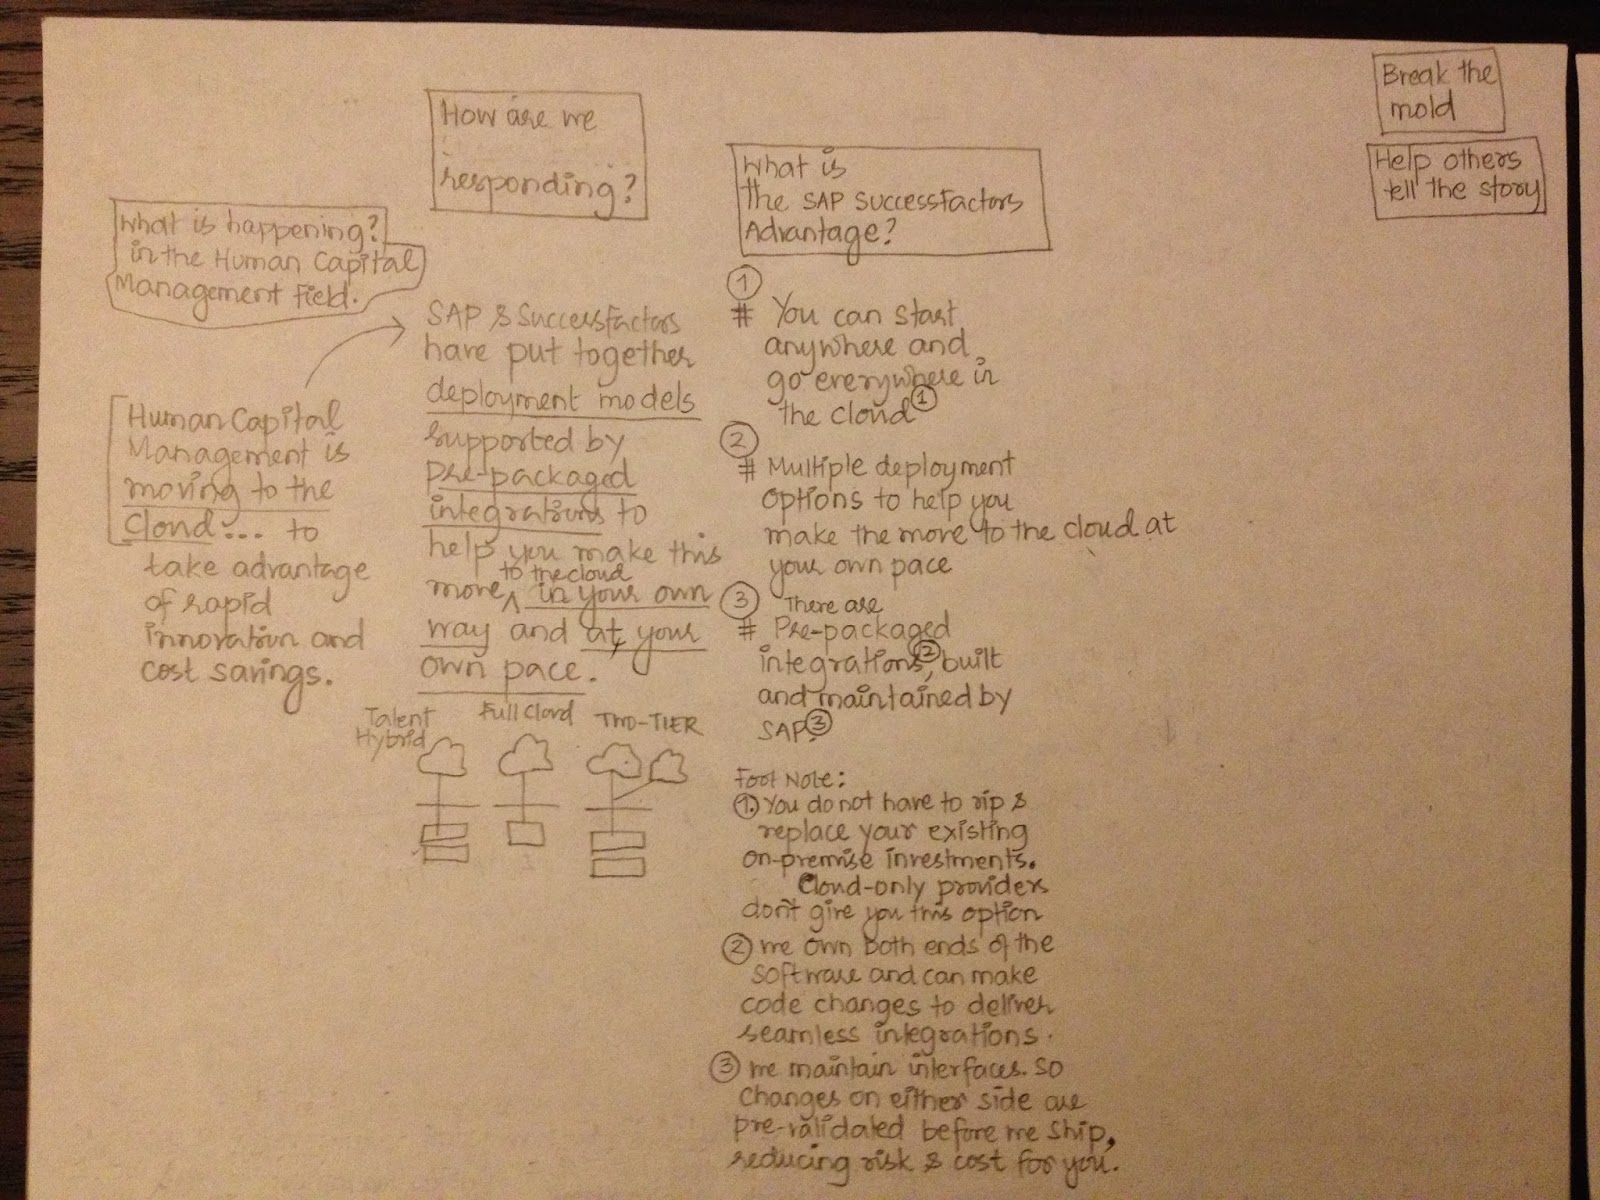 What is happening?
in the Human Capital
Management Field.
Human Capital
Management is
moving to the
Cloud... to
take advantage
of rapid
innovation and
cost savings.
How are we
responding?
SAP & SuccessFactors
have put together
deployment models
supported by
Pre-packaged
integrations to
help you make this
move ^ to the cloud in your own
way and at your
own pace.
Talent
Hybrid
Full Cloud
TWO-TIER
What is
the SAP SuccessFactors
Advantage?
①
# You can start
anywhere and
go everywhere in
the cloud ①
②
# Multiple deployment
options to help you
make the move to the cloud at
your own pace
③ There are
# Pre-packaged
integrations②, built
and maintained by
SAP.③
Foot Note:
①. You do not have to rip &
replace your existing
on-premise investments.
Cloud-only providers
don't give you this option
② we own both ends of the
software and can make
code changes to deliver
seamless integrations.
③ we maintain interfaces. So
changes on either side are
pre-validated before we ship,
reducing risk & cost for you.
Break the
mold
Help others
tell the story